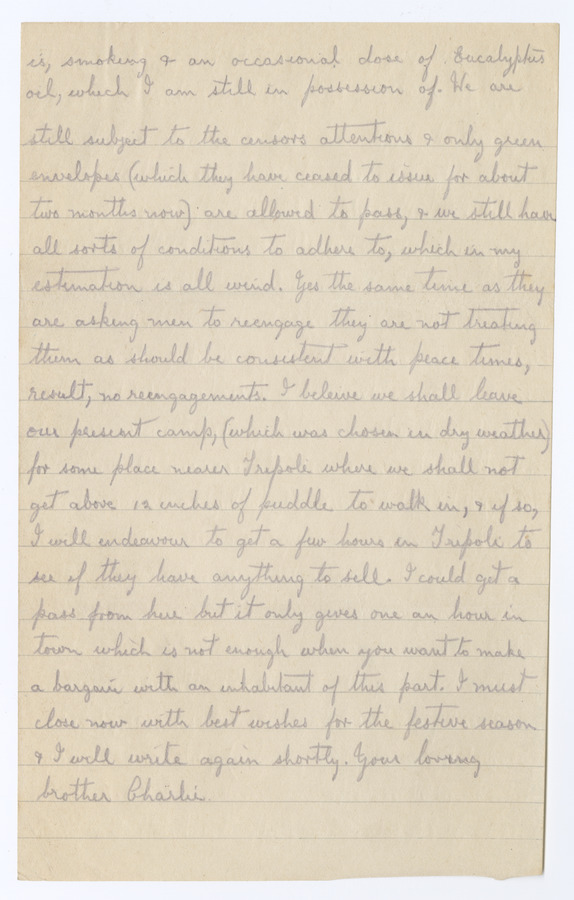 is, smoking & an occasional dose of Eucalyptus
oil, which I am still in possession of. We are
still subject to the censors attentions & only green
envelopes (which they have ceased to issue for about
two months now) are allowed to pass, & we still have
all sorts of conditions to adhere to, which in my
estimation is all wind. Yes the same time as they
are asking men to reengage they are not treating
them as should be consistent with peace times,
result, no reengagements. I beleive we shall leave
our present camp, (which was chosen in dry weather)
for some place nearer Tripoli where we shall not
get above 12 inches of puddle to walk in, & if so,
I will endeavour to get a few hours in Tripoli to
see if they have anything to sell. I could get a
pass from here but it only gives one an hour in
town which is not enough when you want to make
a bargain with an inhabitant of this part. I must
close now with best wishes for the festive season
& I will write again shortly. Your loving
brother Charlie